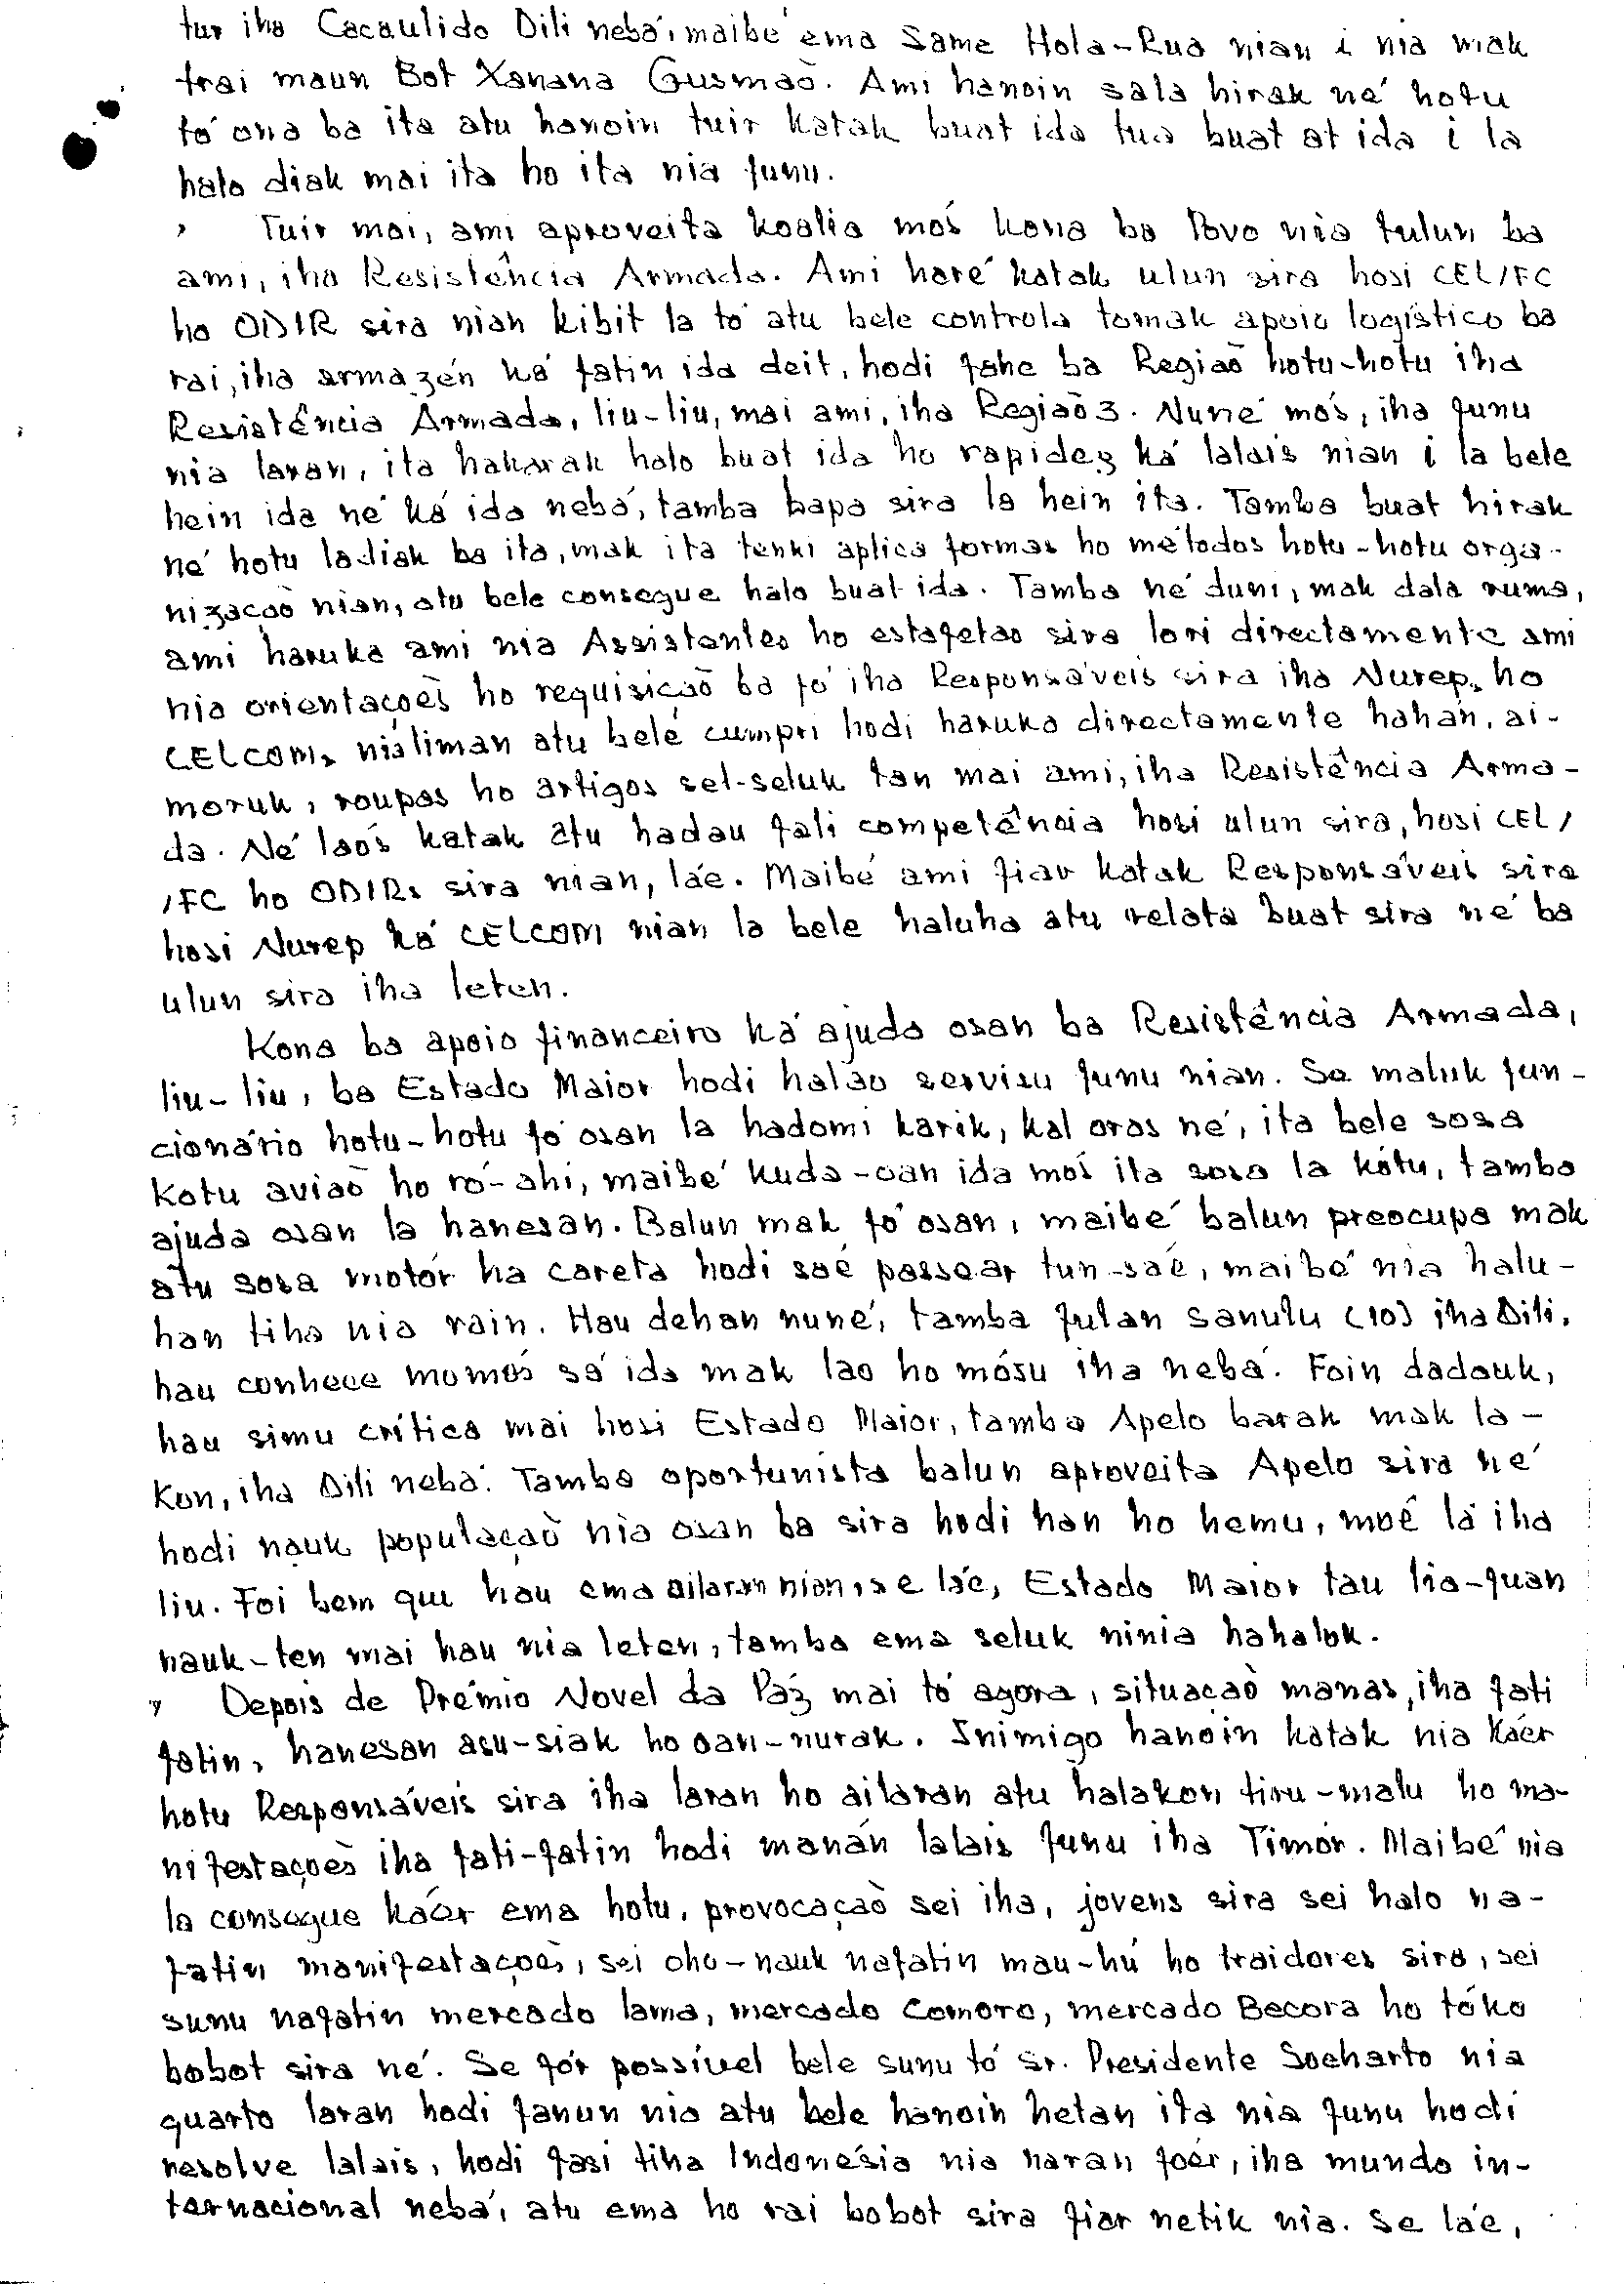 tur iha Cacaulido Dili nebá, maibé ema Same Hola-Rua nian i nia mak
trai maun Bot Xanana Gusmaõ. Ami hanoin sala hirak né hotu
tó ona ba ita atu hanoin tuir katak buat ida tua buat at ida i la
halo diak mai ita ho ita nia funu.
Tuir mai, ami aproveita koalia mós kona ba Povo nia tulun ba
ami, iha Resistência Armada. Ami haré katak ulun sira hosi CEL/FC
ho ODIR sira nian kibit la tó atu bele controla tomak apoio logístico ba
rai, iha armazén ká fatin ida deit, hodi fahe ba Regiaõ hotu-hotu iha
Resistência Armada, liu-liu, mai ami, iha Regiaõ 3. Nuné mós, iha funu
nia laran, ita hakarak halo buat ida ho rapidez ká lalais nian i la bele
hein ida né ká ida nebá, tamba bapa sira la hein ita. Tamba buat hirak
né hotu ladiak ba ita, mak ita tenki aplica formas ho métodos hotu-hotu orga-
nizacaõ nian, atu bele consegue halo buat ida. Tamba né duni, mak dala ruma,
ami haruka ami nia Assistentes ho estafetas sira lori directamente ami
nia orientaçoẽs ho requisiçaõ ba fó iha Responsáveis sira iha Nurep, ho
CELCOM, nia liman atu belé cumpri hodi haruka directamente hahán, ai-
moruk, roupas ho artigos sel-seluk tan mai ami, iha Resistência Arma-
da. Né laos katak atu hadau fali competência hosi ulun sira, hosi CEL/
/FC ho ODIRs sira nian, láe. Maibé ami fiar katak Responsáveis sira
hosi Nurep ká CELCOM nian la bele haluha atu relata buat sira né ba
ulun sira iha leten.
Kona ba apoio financeiro ká ajuda osan ba Resistência Armada,
liu-liu, ba Estado Maior hodi halao servisu funu nian. Se maluk fun-
cionário hotu-hotu fó osan la hadomi karik, kal oras né, ita bele sosa
kotu aviaõ ho ró-ahi, maibé kuda-oan ida mós ita sosa la kótu, tamba
ajuda osan la hanesan. Balun mak fó osan, maibé balun preocupa mak
atu sosa motór ha careta hodi saé passear tun-saé, maibé nia halu-
han tiha nia rain. Hau dehan nuné, tamba fulan sanulu (10) iha Dili,
hau conhece momós sá ida mak lao ho mósu iha nebá. Foin dadauk,
hau simu crítica mai hosi Estado Maior, tamba Apelo barak mak la-
kon, iha Dili nebá. Tamba oportunista balun aproveita Apelo sira né
hodi nauk populaçaõ nia osan ba sira hodi han ho hemu, moé la iha
liu. Foi bem que hau ema ailaran nian, se láe, Estado Maior tau lia-fuan
nauk-ten mai hau nia leten, tamba ema seluk ninia hahalok.
Depois de Prémio Novel da Páz mai tó agora, situaçaõ manas, iha fati
fatin, hanesan asu-siak ho oan-nurak. Inimigo hanoin katak nia káer
hotu Responsáveis sira iha laran ho ailaran atu halakon tiru-malu ho ma-
nifestaçoẽs iha fati-fatin hodi manán lalais funu iha Timór. Maibé nia
la consegue káer ema hotu, provocaçaõ sei iha, jovens sira sei halo na-
fatin manifestaçoẽs, sei oho-nauk nafatin mau-hú ho traidores sira, sei
sunu nafatin mercado lama, mercado Comoro, mercado Becora ho tóko
bobot sira né. Se fór possível bele sunu tó Sr. Presidente Soeharto nia
quarto laran hodi fanun nia atu bele hanoin hetan ita nia funu hodi
resolve lalais, hodi fasi tiha Indonésia nia naran foér, iha mundo in-
ternacional nebá, atu ema ho rai bobot sira fiar netik nia. Se láe,